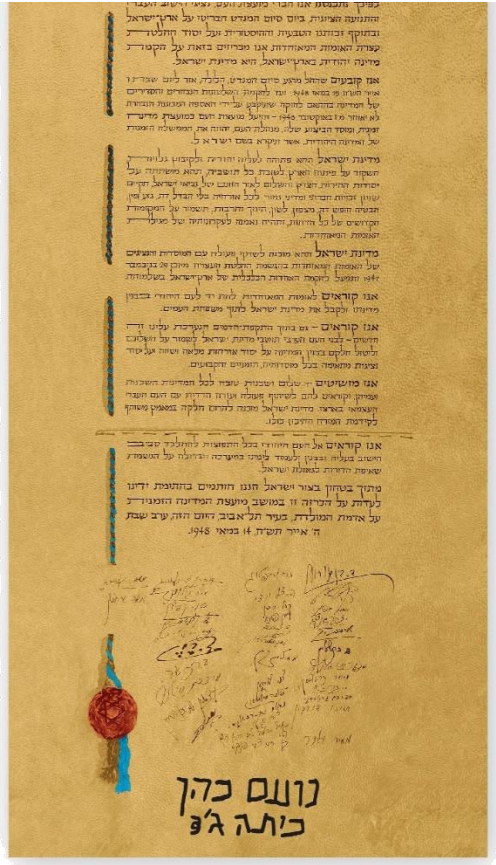 לפיכך נתכנסנו אנו חברי מועצת העם, נציגי הישוב העברי
והתנועה הציונית, ביום סיום המנדט הבריטי על ארץ־ישראל
ובתוקף זכותנו הטבעית וההיסטורית ועל יסוד החלטת
עצרת האומות המאוחדות אנו מכריזים בזאת על הקמת
מדינה יהודית בארץ ישראל, היא מדינת ישראל.
אנו קובעים שהחל מרגע סיום המנדט, הלילה, אור ליום שבת ו'
אייר תש"ח, 15 במאי 1948, ועד להקמת השלטונות הנבחרים והסדירים
של המדינה בהתאם לחוקה שתיקבע על־ידי האספה המכוננת הנבחרת
לא יאוחר מ־1 באוקטובר 1948 – תפעל מועצת העם כמועצת מדינה
זמנית, ומוסד הביצוע שלה, מנהלת העם, יהווה את הממשלה הזמנית
של המדינה היהודית, אשר תיקרא בשם ישראל.
מדינת ישראל תהא פתוחה לעליה יהודית ולקיבוץ גלויות
תשקוד על פיתוח הארץ לטובת כל תושביה, תהא מושתתה על
יסודות החירות, הצדק והשלום לאור חזונם של נביאי ישראל, תקיים
שויון זכויות חברתי ומדיני גמור לכל אזרחיה בלי הבדל דת, גזע ומין,
תבטיח חופש דת, מצפון, לשון, חינוך ותרבות, תשמור על המקומות
הקדושים של כל הדתות, ותהיה נאמנה לעקרונותיה של מגילת
האומות המאוחדות.
מדינת ישראל תהא מוכנה לשתף פעולה עם המוסדות והנציגים
של האומות המאוחדות בהגשמת החלטת העצרת מיום 29 בנובמבר
1947 ותפעל להקמת האחדות הכלכלית של ארץ־ישראל בשלמותה
אנו קוראים לאומות המאוחדות לתת יד לעם היהודי בבנין
מדינתו ולקבל את מדינת ישראל לתוך משפחת העמים.
אנו קוראים – גם בתוך התקפת־הדמים הנערכת עלינו זה
חדשים – לבני העם הערבי תושבי מדינת ישראל לשמור על השלום
וליטול חלקם בבנין המדינה על יסוד אזרחות מלאה ושווה ועל יסוד
נציגות מתאימה בכל מוסדותיה, הזמניים והקבועים.
אנו מושיטים יד שלום ושכנות טובה לכל המדינות השכנות
ועמיהן, וקוראים להם לשיתוף פעולה ועזרה הדדית עם העם העברי
העצמאי בארצו מדינת ישראל מוכנה לתרום חלקה במאמץ משותף
לקידמת המזרח התיכון כולו.
אנו קוראים אל העם היהודי בכל התפוצות להתלכד סביב
הישוב בעליה ובבנין ולעמוד לימינו במערכה הגדולה על הגשמת
שאיפת הדורות לגאולת ישראל.
מתוך בטחון בצור ישראל הננו חותמים בחתימת ידינו
לעדות על הכרזה זו במושב מועצת המדינה הזמנית
על אדמת המולדת, בעיר תל־אביב, היום הזה, ערב שבת
ה' אייר תש"ח, 14 במאי 1948.
נועם כהן
כיתה ג'3